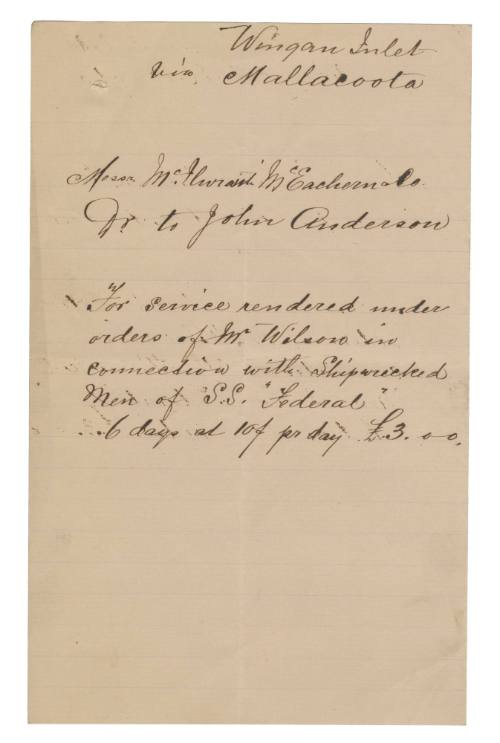 Wingan Inlet
via Mallacoota
Messrs McIlwraith McEacharn & Co.
Dr to John Anderson
"For service rendered under
orders of Mr Wilson in
connection with Shipwrecked
Men of S.S. "Federal"
6 days at 10/ pr day £3.00.